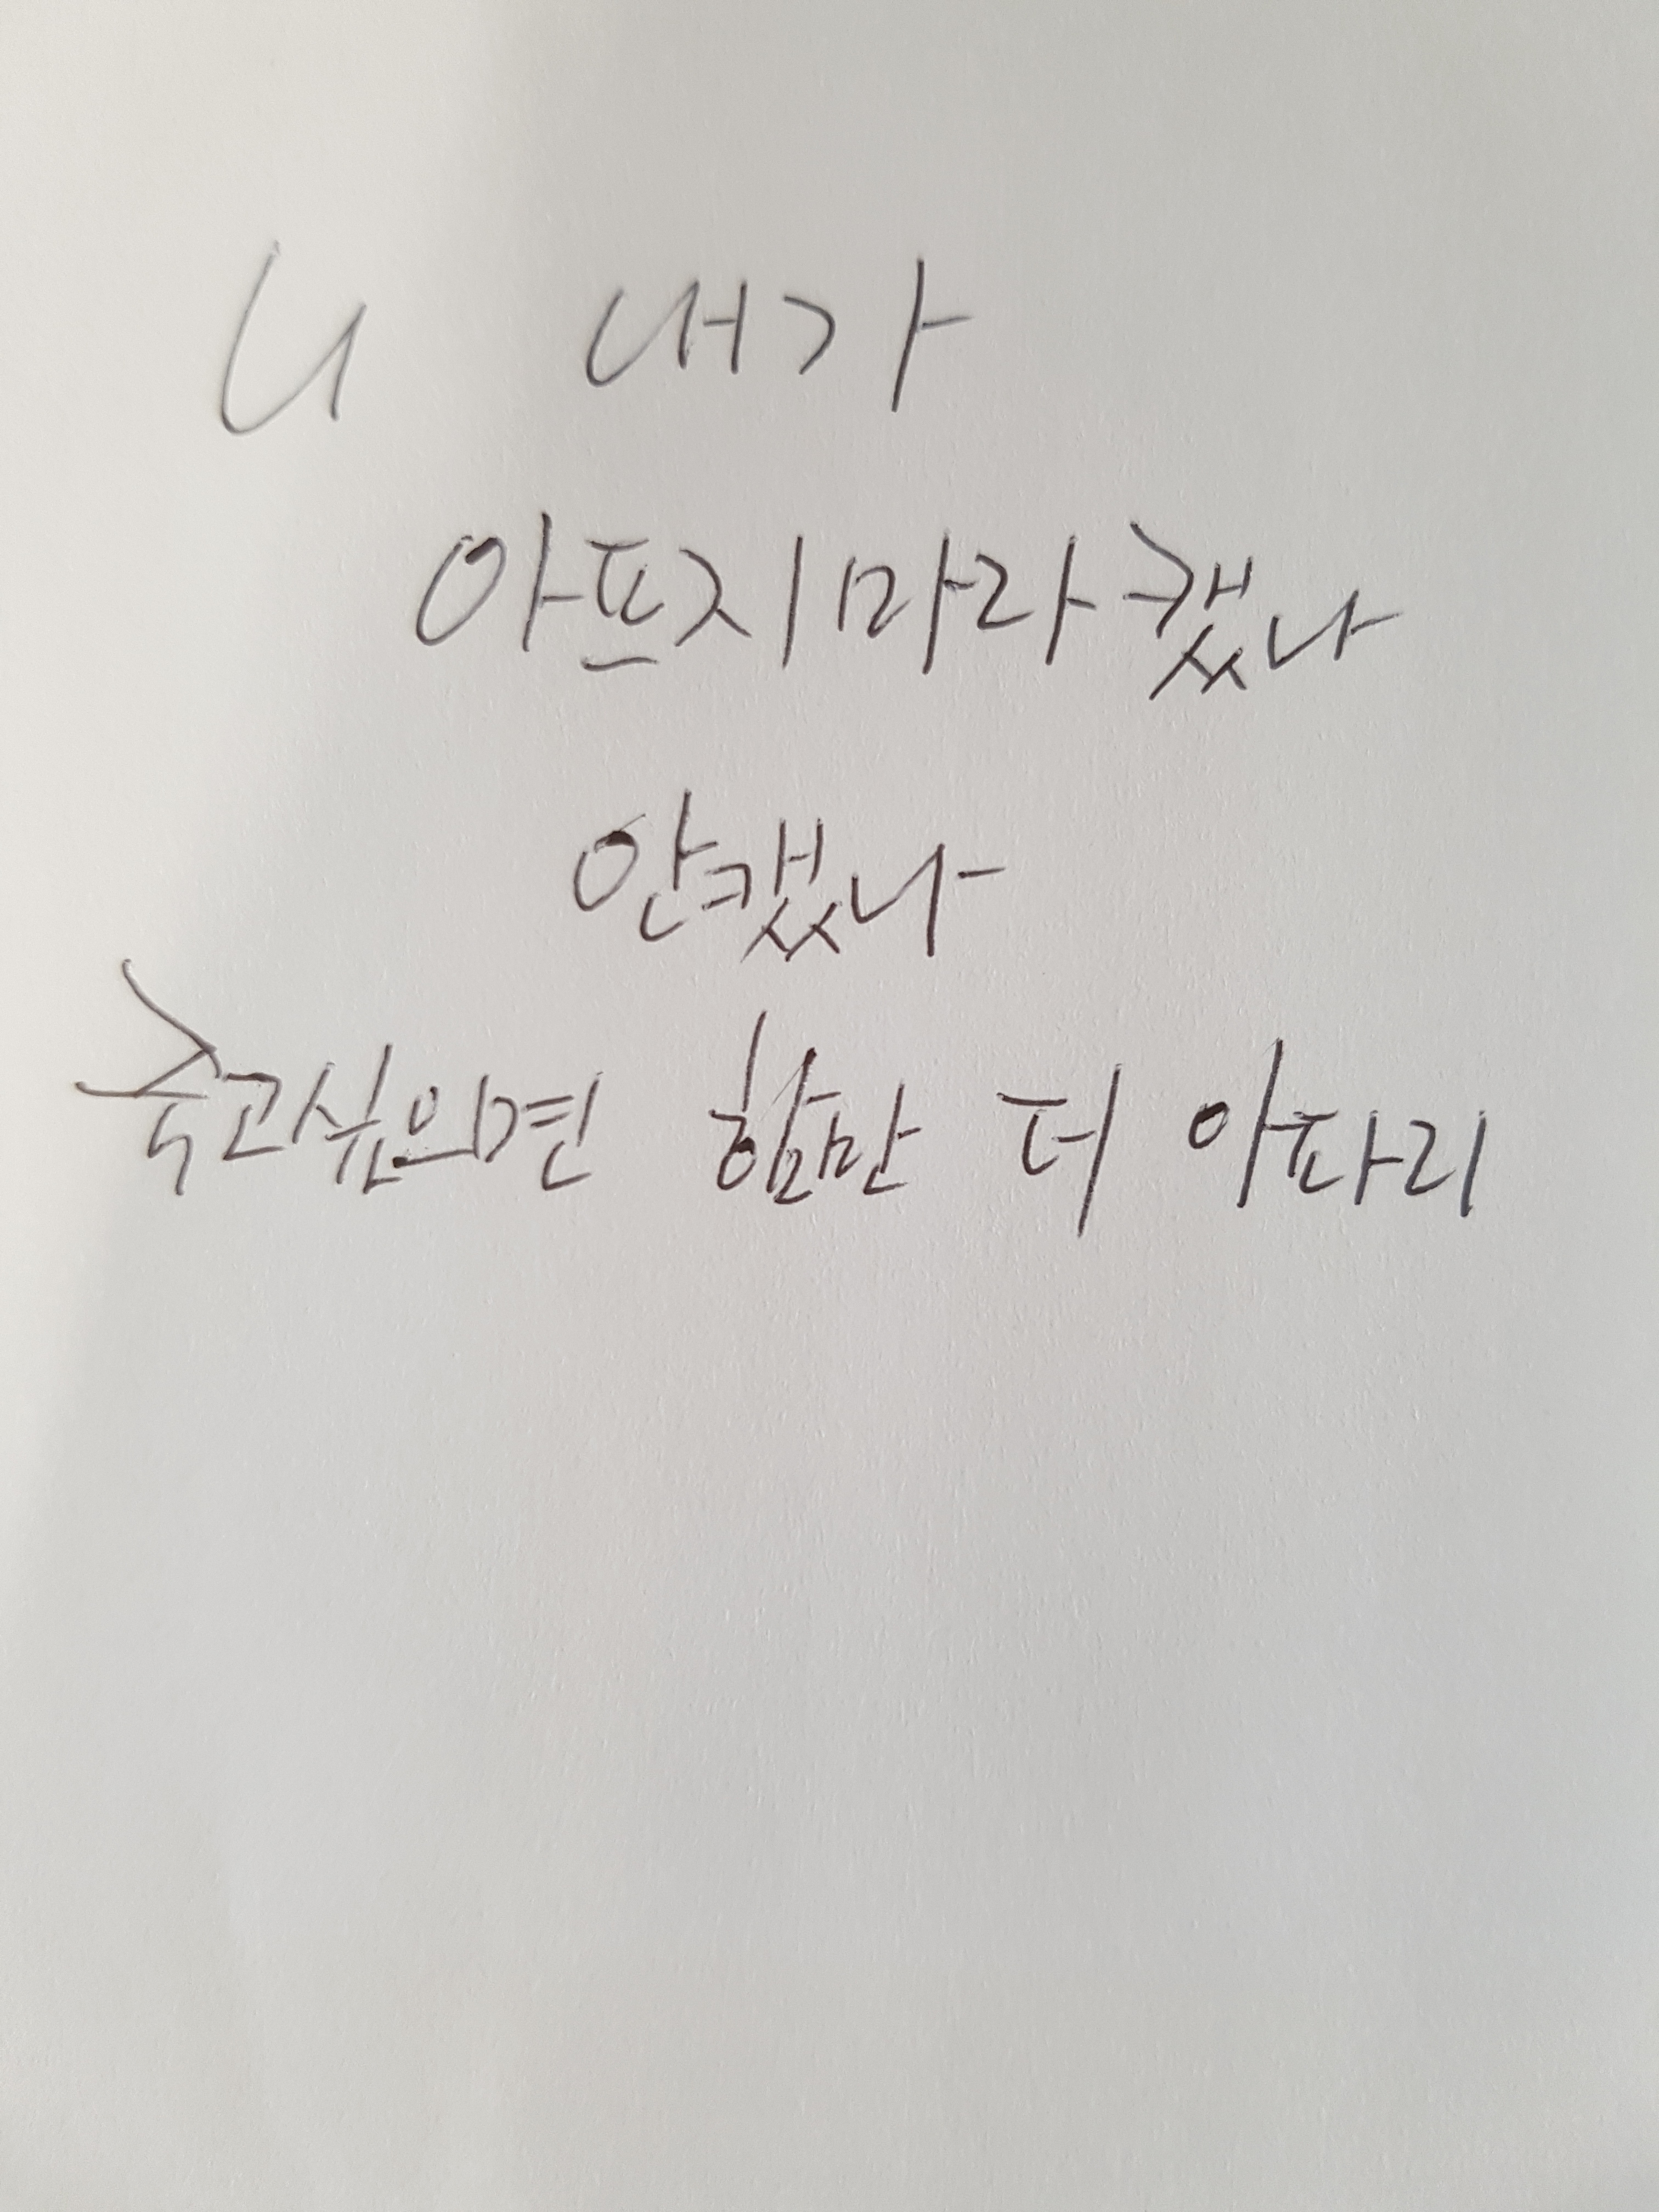 니 내가
아프지마라캤나
안캤나
죽고싶으면 함만 더 아파리